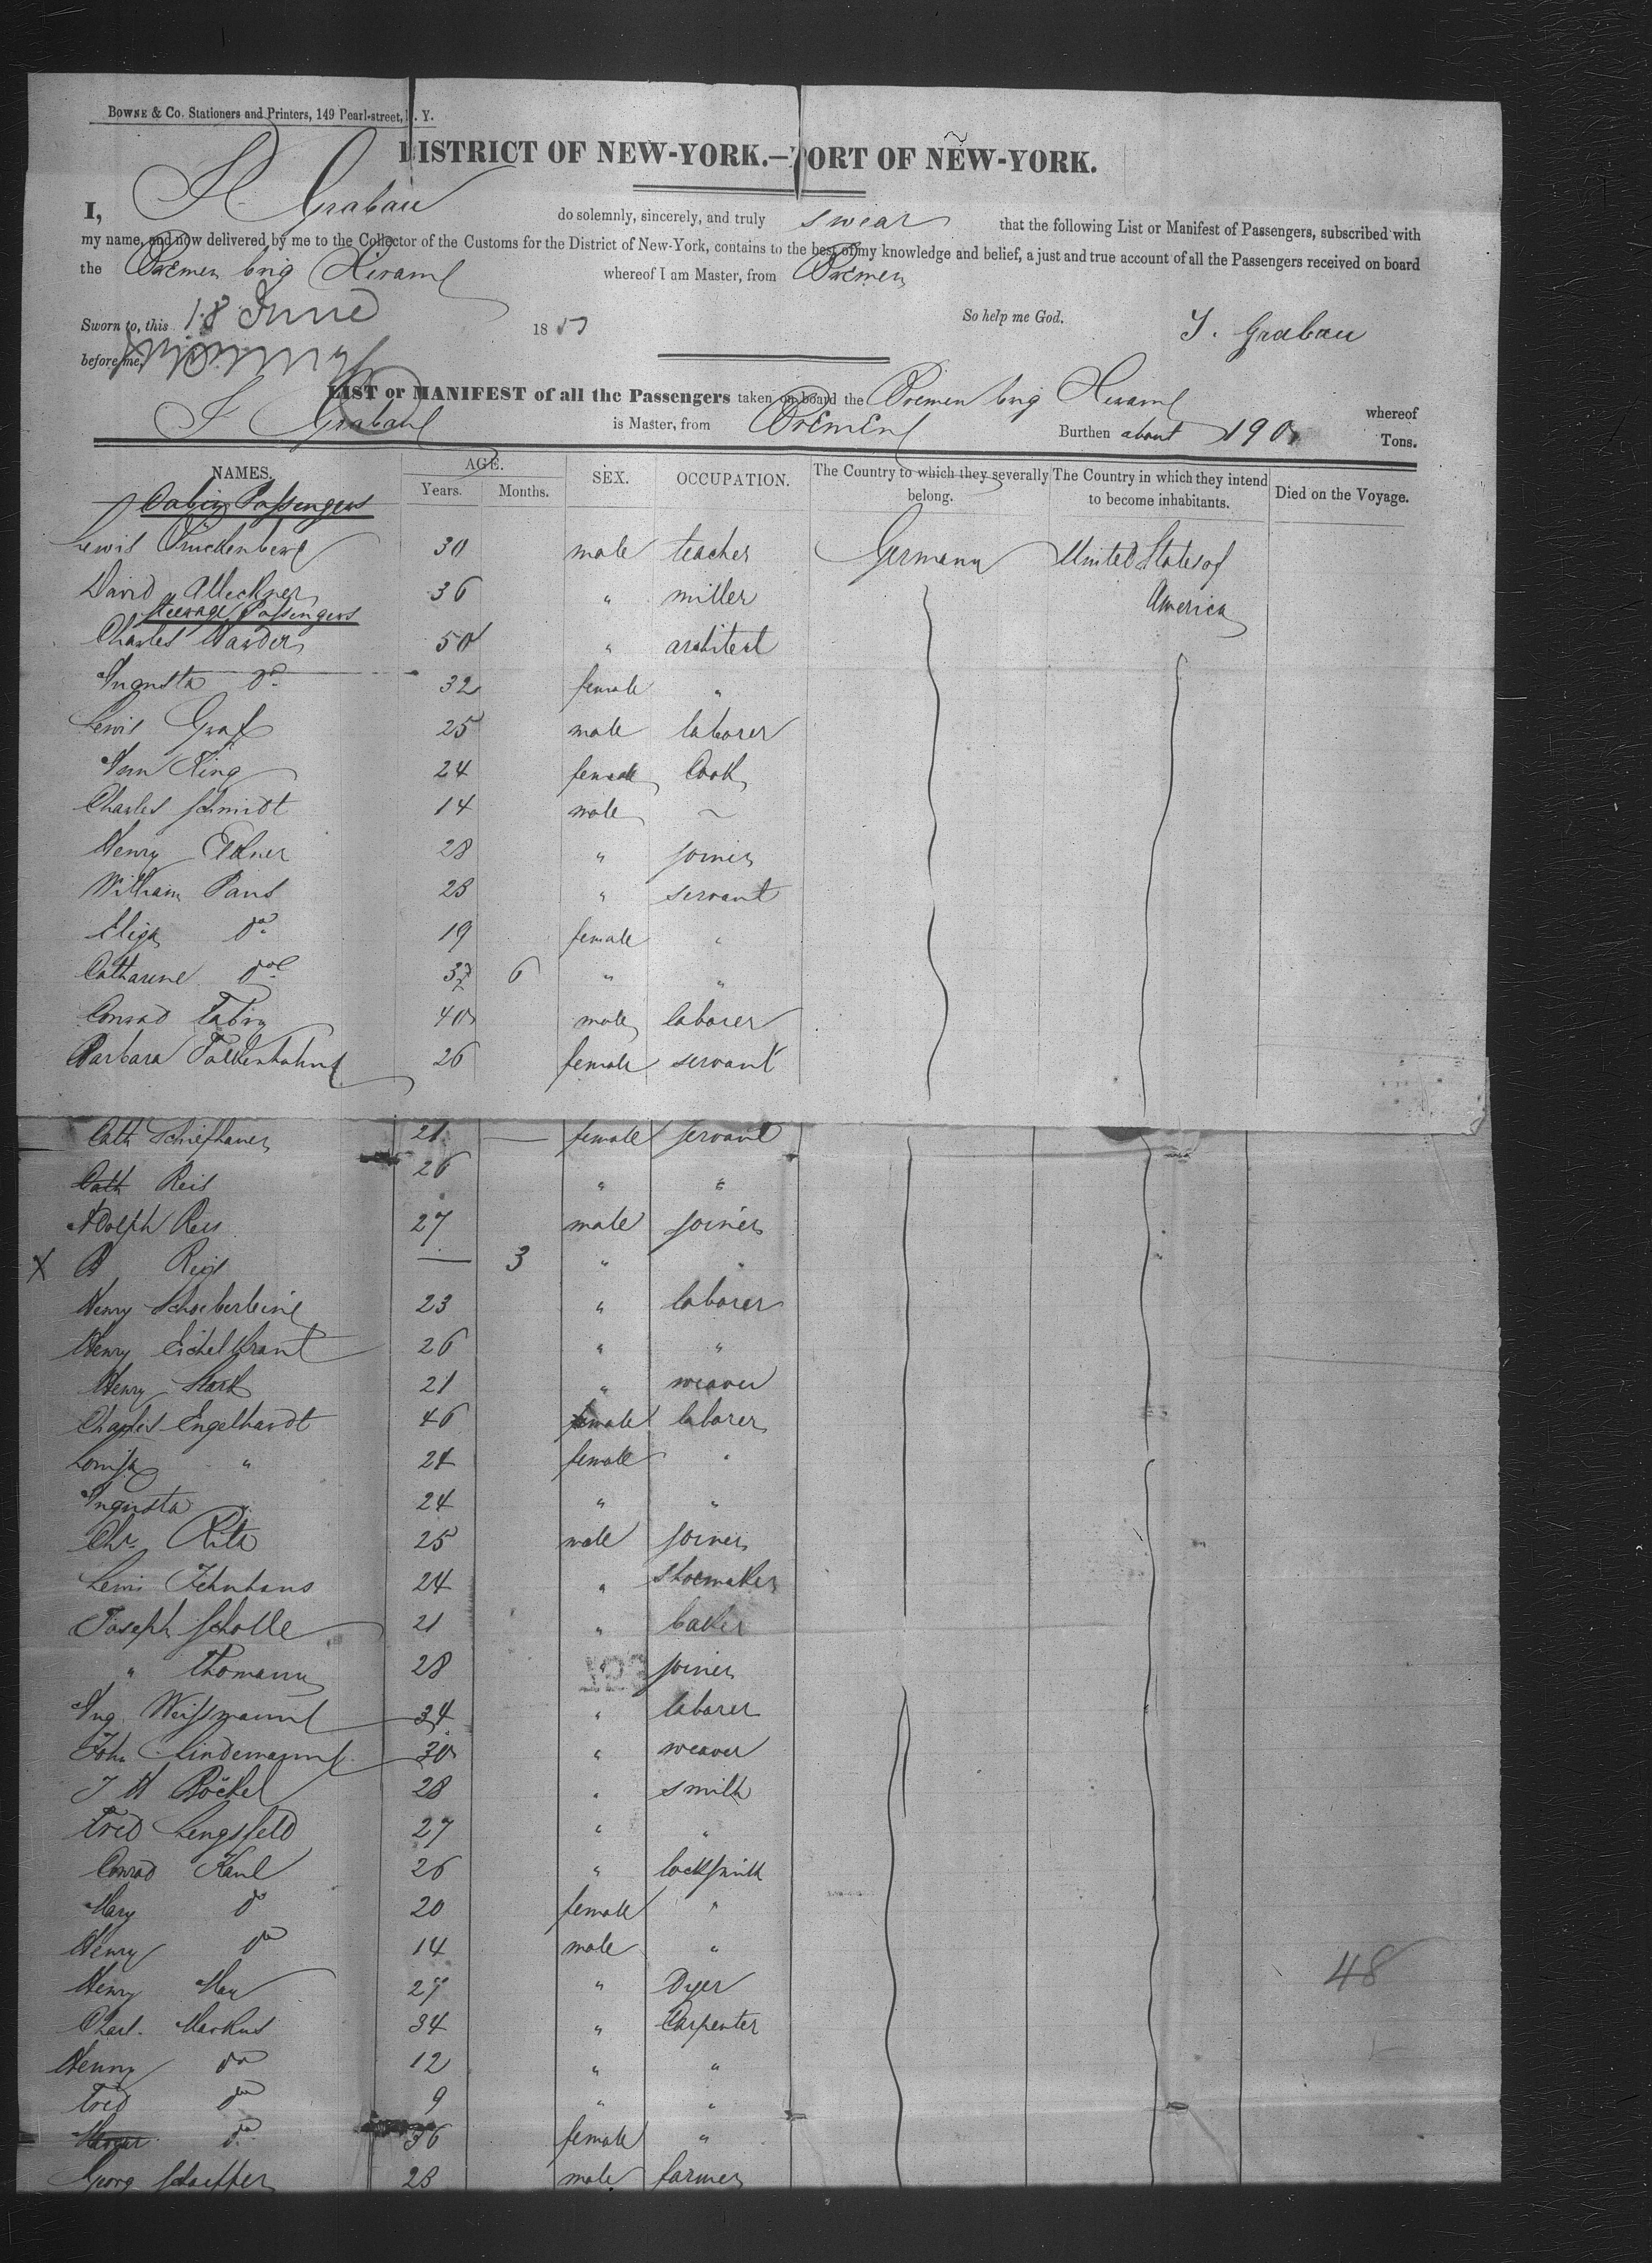 BOWNE & Co. Stationers and Printers, 149 Pearl-street, N. Y.
DISTRICT OF NEW-YORK.—PORT OF NEW-YORK.
I, H. Grabau do solemnly, sincerely, and truly swear that the following List or Manifest of Passengers, subscribed with
my name, and now delivered by me to the Collector of the Customs for the District of New-York, contains to the best of my knowledge and belief, a just and true account of all the Passengers received on board
the Bremen brig Hiram whereof I am Master, from Bremen
Sworn to, this 18 June 18 So help me God. Grabau
before me,
LIST or MANIFEST of all the Passengers taken on board the Bremen brig Hiram whereof
Grabau is Master, from Bremen Burthen about 190 Tons.
NAMES. AGE. Years. Months. SEX. OCCUPATION. The Country to which they severally belong. The Country in which they intend to become inhabitants. Died on the Voyage.
Cabin Passengers
Lewis 30 male teacher Germany United States of
David 36 " miller America
Steerage Passengers
Charles 50 " architect
Augusta do 32 female "
Lewis Graf 25 male laborer
Ann King 24 female Cook
Charles Schmidt 14 male ~
Henry 28 " joiner
William 23 " servant
Eliza do 19 female "
Catharine do 6 " "
Conrad 40 male laborer
Barbara Falkenhahn 26 female servant
Cath 21 — female servant
Cath Reis 26 " "
Adolph Reis 27 male joiner
X Reis — 3 " "
Henry Schoeberlein 23 " laborer
Henry 26 " "
Henry Stark 21 " weaver
Charles Engelhardt 46 male laborer
Louisa " 24 female "
Augusta " 24 " "
Chr. 25 male joiner
Lewis 24 " shoemaker
Joseph Scholle 21 " baker
" Thomann 28 " joiner
Aug. Weissmann 34 " laborer
John Lindemann 30 " weaver
J H Böckel 28 " smith
Fred Lengsfeld 27 " "
Conrad Kaul 26 " locksmith
Mary do 20 female "
Henry do 14 male "
Henry 27 " Dyer
Charl. Markus 34 " Carpenter
Henry do 12 " "
Fred do 9 " "
do 36 female "
Georg Schaeffer 23 male farmer
48